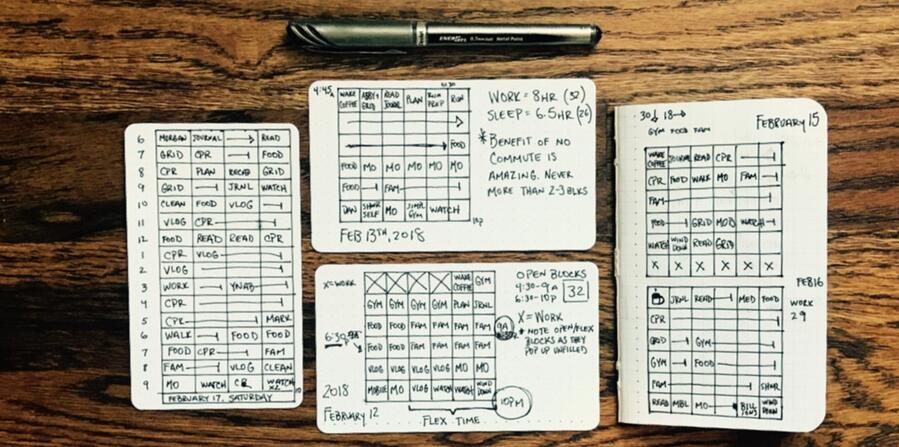 ENERGEL 0.7mm Metal Point
6 MORGAN JOURNAL READ
7 GRID CPR FOOD
8 CPR PLAN RECAP GRID
9 GRID JRNL WATCH
10 CLEAN FOOD VLOG
11 VLOG CPR
12 FOOD READ READ CPR
1 CPR VLOG
2 VLOG
3 WORK YNAB
4 CPR
5 CPR MARK
6 WALK FOOD FOOD
7 FOOD CPR FAM
8 FAM VLOG CLEAN
9 MO WATCH CR WATCH 10
FEBRUARY 17, SATURDAY
4:45A WAKE COFFEE ABBY+ GRID READ JOURN PLAN RUN PREP RUN
FOOD
FOOD MO MO MO MO MO
FOOD FAM
DAN SHWR SELF MO GYM WATCH
FEB 13TH, 2018
WORK = 8HR (32)
SLEEP = 6.5HR (26)
* BENEFIT OF NO
COMMUTE IS
AMAZING. NEVER
MORE THAN 2-3 BLKS
X=WORK
X X X X WAKE COFFEE GYM
GYM GYM GYM GYM PLAN JRNL
FOOD FOOD FAM FAM FAM FAM
6:30 FOOD FOOD FAM FAM FAM FAM
VLOG VLOG VLOG VLOG MO MO
MOBILE MO VLOG WATCH WATCH WIND DOWN
2018
FEBRUARY 12
FLEX TIME
OPEN BLOCKS
4:30-9A
6:30-10P 32
X = WORK
* NOTE OPEN/FLEX
BLOCKS AS THEY
POP UP UNFILLED
9A
10PM
30 18
GYM FOOD FAM
FEBRUARY 15
WAKE COFFEE JOURNAL READ CPR
CPR FOOD WORK MO FAM
FAM
FOOD GRID MOB WATCH
WATCH WIND DOWN READ GRID
X X X X X X
FEB16
WORK
29
JRNL READ MED FOOD
CPR
GRID GYM
GYM FOOD
FAM SHWR
READ MBL MO WIND DOWN